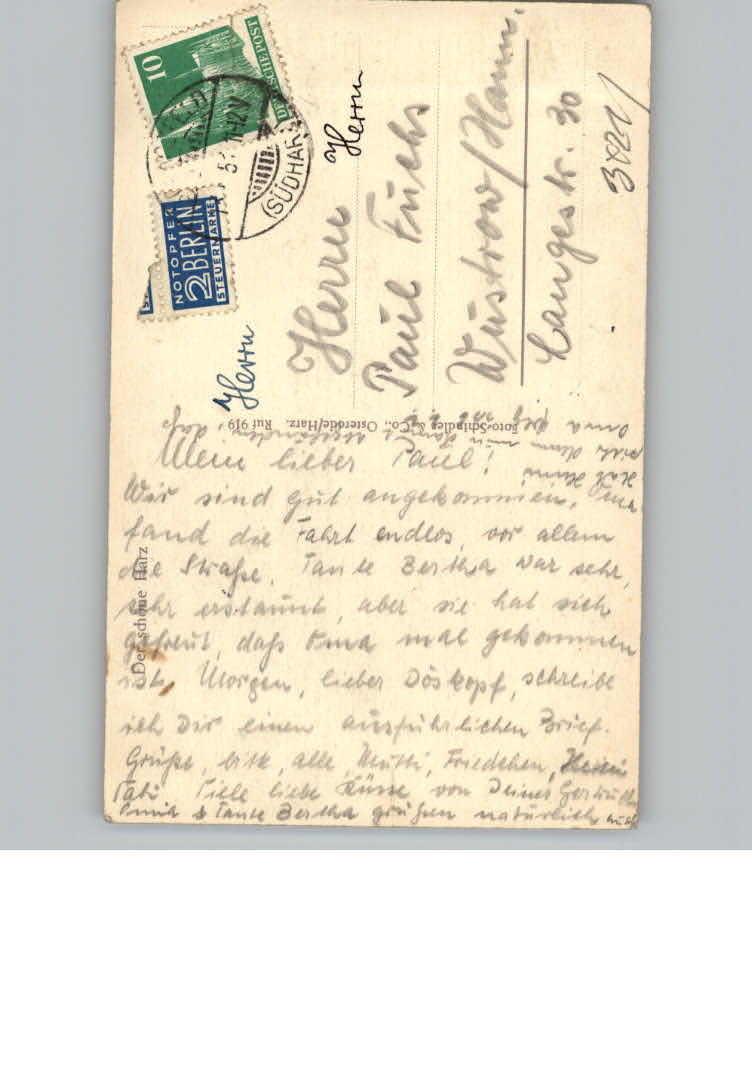 10
DEUTSCHE POST
(SÜDHARZ
51 11-12V
NOTOPFER
2 BERLIN
STEUERMARKE
Herrn
Herrn
Herrn
Paul Fuchs
Wustrow/Hann.
Langestr. 30
3821/
Foto-Schindler & Co., Osterode/Harz. Ruf 919
Der schöne Harz
Mein lieber Paul!
Wir sind gut angekommen. Oma
fand die Fahrt endlos, vor allem
die Straße. Tante Bertha war sehr,
sehr erstaunt, aber sie hat sich
gefreut, daß Oma mal gekommen
ist. Morgen, lieber Döskopf, schreibe
ich Dir einen ausführlichen Brief.
Grüße, bitte, alle, Mutti, Friedchen, Heini
Vati Viele liebe Küsse von Deiner Gertrud
Omi & Tante Bertha grüßen natürlich auch
Hat Heini
daß
Oma